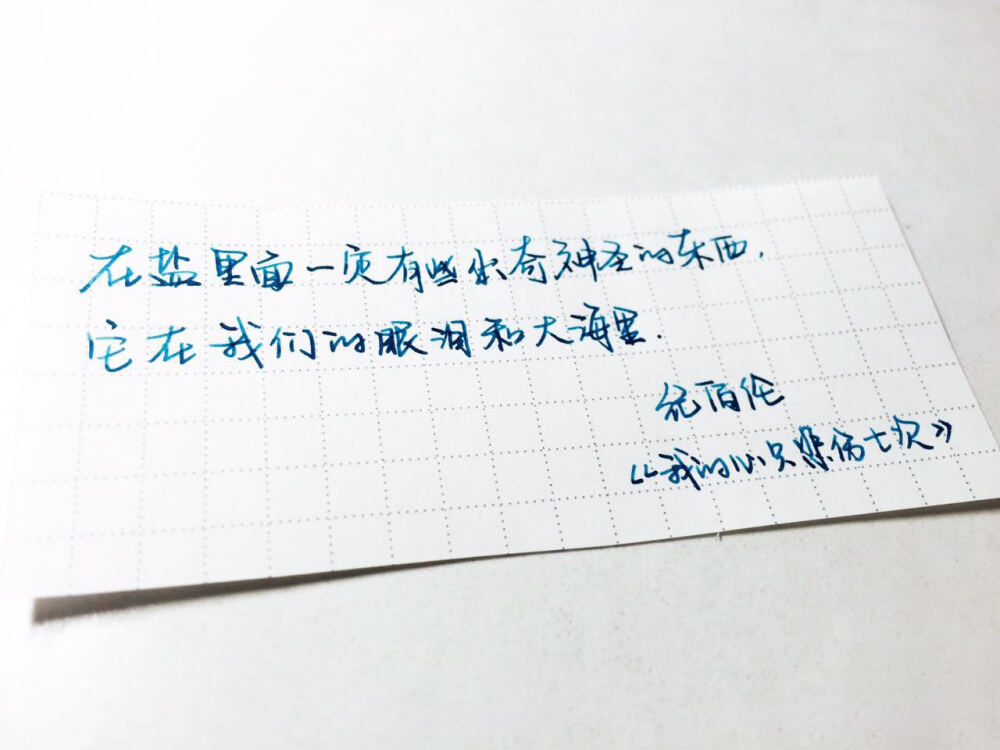 在盐里面一定有些出奇神圣的东西,
它在我们的眼泪和大海里.
纪伯伦
《我的心只悲伤七次》